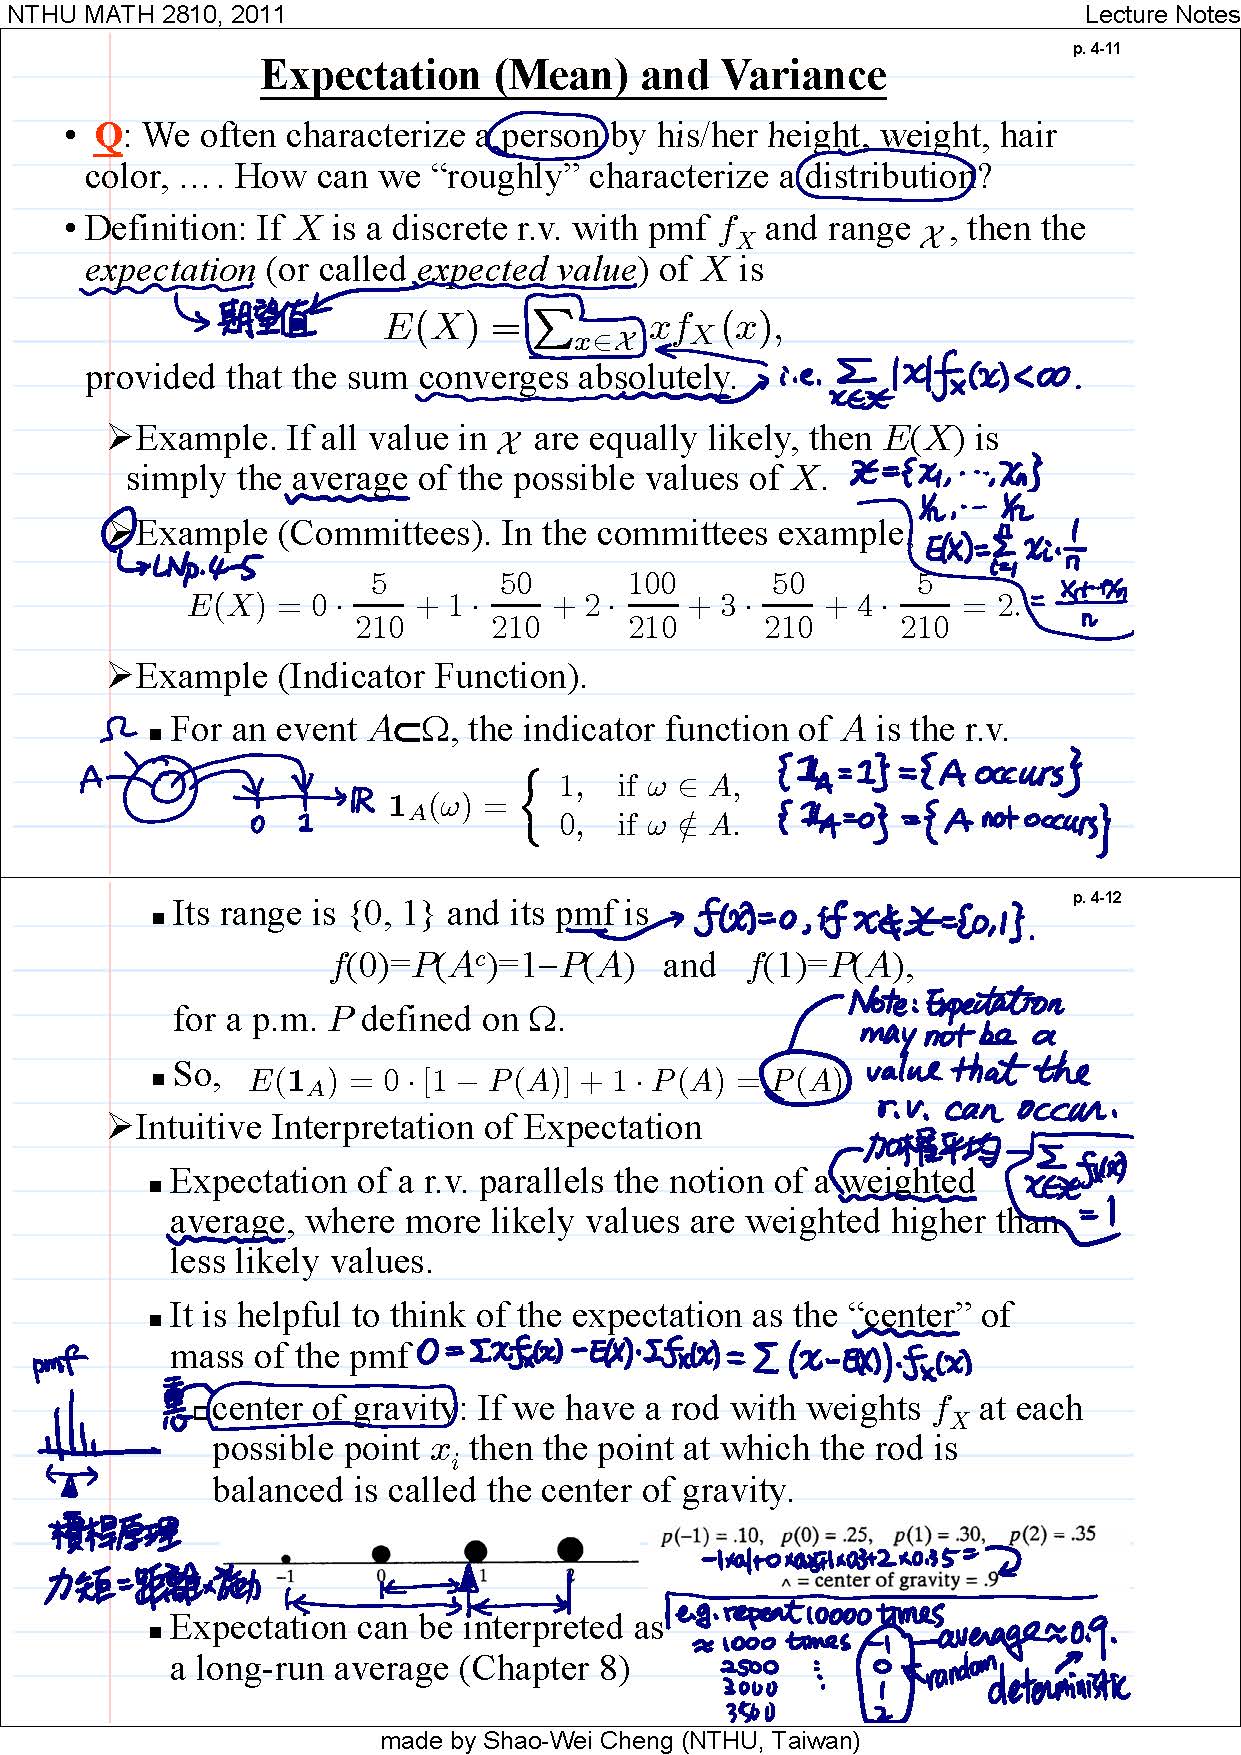 NTHU MATH 2810, 2011
Lecture Notes
p. 4-11
Expectation (Mean) and Variance
• Q: We often characterize a person by his/her height, weight, hair
color, …. How can we “roughly” characterize a distribution?
• Definition: If X is a discrete r.v. with pmf f_X and range 𝒳, then the
expectation (or called expected value) of X is
期望值
E(X) = ∑_{x∈𝒳} x f_X(x),
provided that the sum converges absolutely. → i.e. ∑_{x∈𝒳} |x| f_X(x) < ∞.
➢Example. If all value in 𝒳 are equally likely, then E(X) is
simply the average of the possible values of X.
𝒳={x₁, ⋯, x_n}
1/n, ⋯ 1/n
E(X)=∑_{i=1}^{n} x_i · 1/n
= (x₁+⋯+x_n)/n
➢Example (Committees). In the committees example
→LNp.4-5
E(X) = 0 · 5/210 + 1 · 50/210 + 2 · 100/210 + 3 · 50/210 + 4 · 5/210 = 2.
➢Example (Indicator Function).
▪ For an event A⊂Ω, the indicator function of A is the r.v.
Ω
A
0 1 ℝ
1_A(ω) = { 1, if ω ∈ A,
0, if ω ∉ A.
{1_A=1}={A occurs}
{1_A=0}={A not occurs}
p. 4-12
▪ Its range is {0, 1} and its pmf is → f(x)=0, if x∉𝒳={0,1}.
f(0)=P(A^c)=1−P(A) and f(1)=P(A),
for a p.m. P defined on Ω.
▪ So, E(1_A) = 0 · [1 − P(A)] + 1 · P(A) = P(A)
Note: Expectation
may not be a
value that the
r.v. can occur.
➢Intuitive Interpretation of Expectation
加權平均
∑_{x∈𝒳} f_X(x)
=1
▪ Expectation of a r.v. parallels the notion of a weighted
average, where more likely values are weighted higher than
less likely values.
▪ It is helpful to think of the expectation as the “center” of
mass of the pmf 0 = ∑x f_X(x) − E(X)·∑f_X(x) = ∑ (x−E(X))·f_X(x)
pmf
重心
□ center of gravity: If we have a rod with weights f_X at each
possible point x_i then the point at which the rod is
balanced is called the center of gravity.
槓桿原理
力矩=距離×施力
−1 0 1 2
p(−1) = .10, p(0) = .25, p(1) = .30, p(2) = .35
^ = center of gravity = .9
▪ Expectation can be interpreted as
a long-run average (Chapter 8)
e.g. repeat 10000 times
≈ 1000 times -1
2500 ⋮ 0
3000 ⋮ 1
3500 2
average≈0.9.
random
deterministic
made by Shao-Wei Cheng (NTHU, Taiwan)